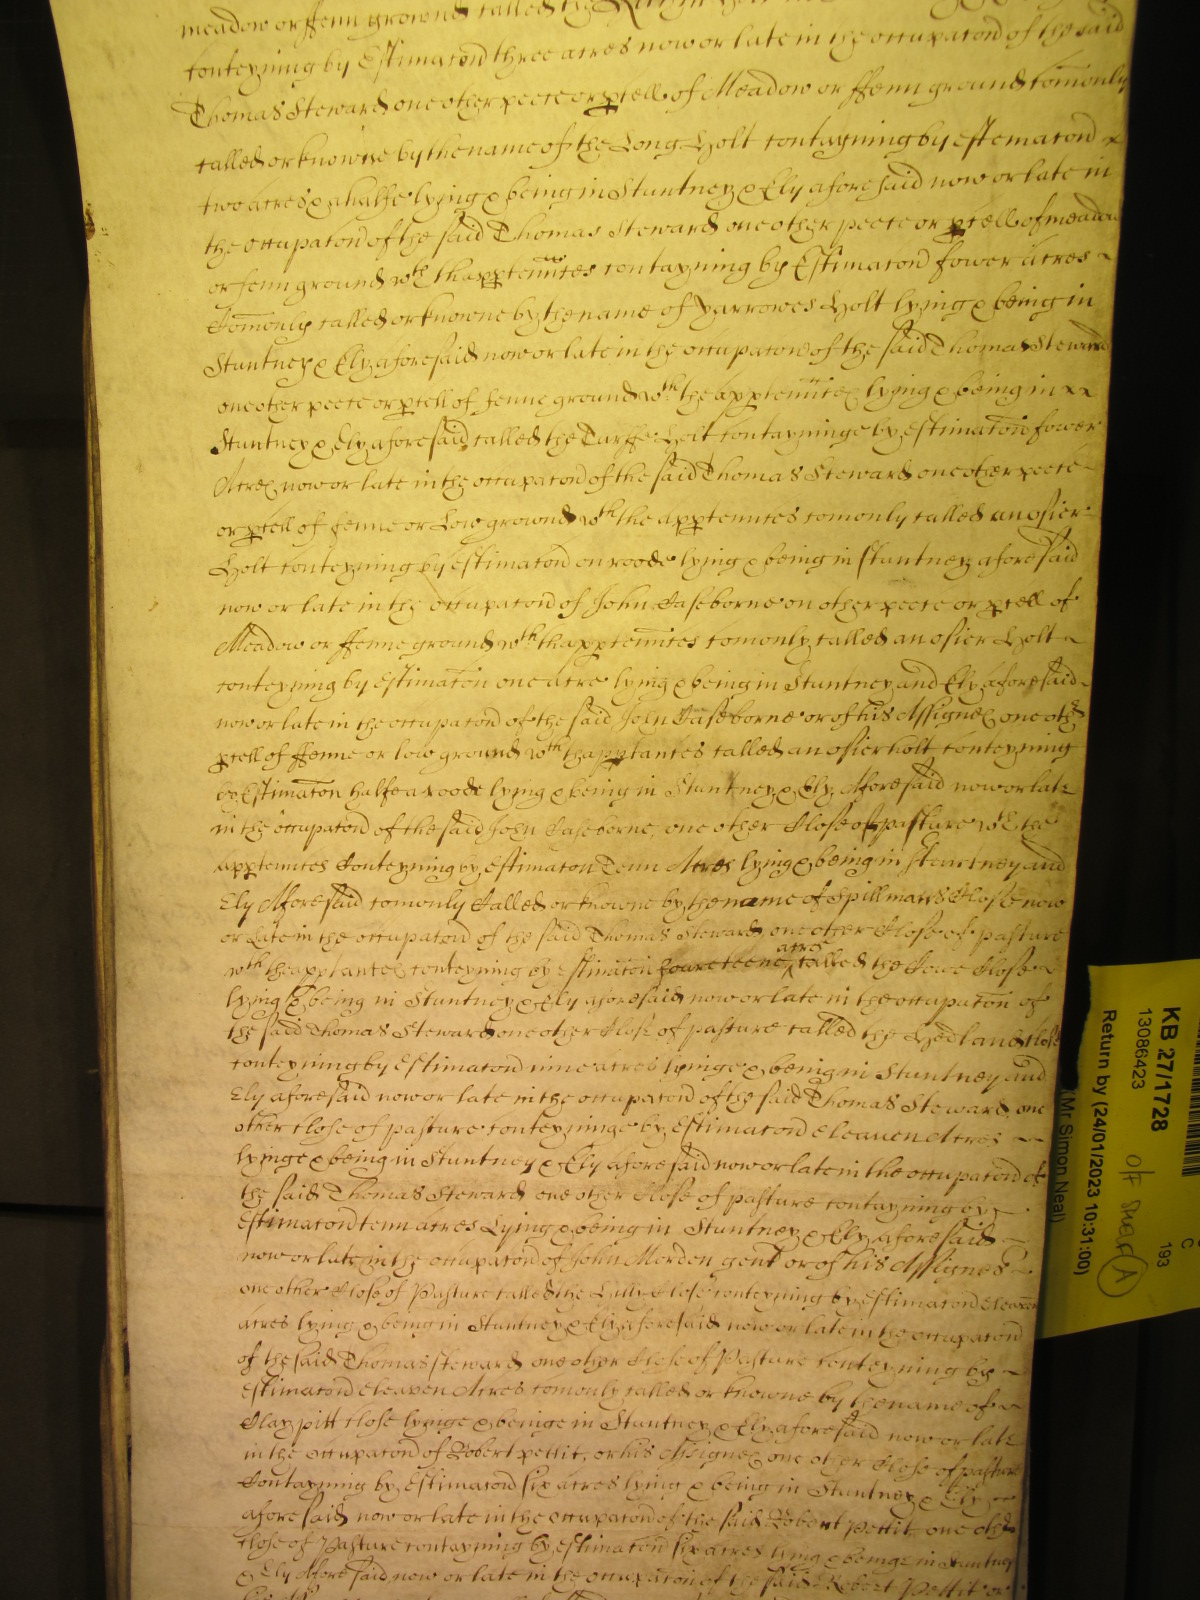 meadow or ffenn grownd called the
conteyning by Estimacon three acres now or late in the occupacon of the said
Thomas Steward one other peece or pcell of Meadow or ffenn ground comonly
called or knowne by the name of the Long Holt contayning by estemacon
two acres & a halfe lying & being in Stuntney & Ely afore said now or late in
the occupacon of the said Thomas Steward one other peece or pcell of meadow
or fenn ground wth thapptennces contayning by Estimacon fower acres
Comonly called or knowne by the name of Yarrowes Holt lying & being in
Stuntney & Ely aforesaid now or late in the occupacon of the said Thomas Steward
one other peece or pcell of fenne ground wth the apptennces lying & being in
Stuntney & Ely aforesaid called the Turffe Holt contayninge by estimacon fower
Acres now or late in the occupacon of the said Thomas Steward one other peece
or pcell of fenne or Low grownd wth the apptennces comonly called an osier
Holt conteyning by estimacon on roode lying & being in Stuntney aforesaid
now or late in the occupacon of John Caseborne on other peece or pcell of
Meadow or ffenne ground wth thapptennces comonly called an osier Holt
conteyning by estimacon one acre lying & being in Stuntney and Ely aforesaid
now or late in the occupacon of the said John Caseborne or of his Assignes one other
pcell of ffenne or low ground wth thapptances called an osier holt conteyning
by Estimacon halfe a roode lying & being in Stuntney & Ely Aforesaid now or late
in the occupacon of the said John Caseborne, one other Close of pasture wth the
apptennces Conteyning by Estimacon Tenn Acres lying & being in Steartney and
Ely Aforesaid comonly Called or knowne by the name of Spillmans Close now
or Late in the occupacon of the said Thomas Steward one other Close of pasture
wth thapptances conteyning by Estimacon foureteene acres called the Cowe Close
lying & being in Stuntney & Ely aforesaid now or late in the occupacon of
the said Thomas Steward one other Close of pasture called the Hedland close
conteyning by Estimacon nine acres lyinge & being in Stuntney and
Ely aforesaid now or late in the occupacon of the said Thomas Steward, one
other close of pasture conteyninge by Estimacon eleaven Acres
lyinge & being in Stuntney & Ely aforesaid now or late in the occupacon of
the said Thomas Steward one other Close of pasture contayning by
Estimacon tenn acres Lying & being in Stuntney & Ely aforesaid
now or late in the occupacon of John Morden gent or of his Assignes
one other Close of Pasture called the Close conteyning by Estimacon eleaven
acres lying & being in Stuntney & Ely aforesaid now or late in the occupacon
of the said Thomas Steward one other Close of Pasture conteyning by
Estimacon eleaven Acres comonly called or knowne by the name of
Clay pitt close lyinge & beinge in Stuntney & Ely aforesaid now or late
in the occupacon of Robert pettit, or his Assignes one other Close of pasture
Contayning by Estimacon six acres lying & being in Stuntney & Ely
aforesaid now or late in the occupacon of the said Robert Pettit, one other
close of Pasture contayning by estimacon six acres lying & beinge in Stuntney
& Ely Aforesaid now or late in the occupacon of the said Robert Pettit or
KB 27/1728
13086423
Off Smed
A
193
C
Return by (24/01/2023 10:31:00)
(Mr Simon Neal)